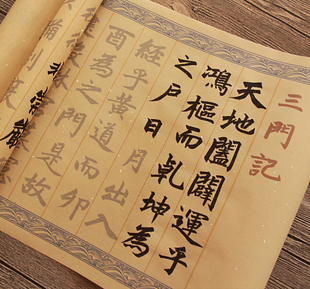 三門記
天地闔闢運乎
鴻樞而乾坤為
之户日月出入
經乎黄道而卯
酉為之門是故